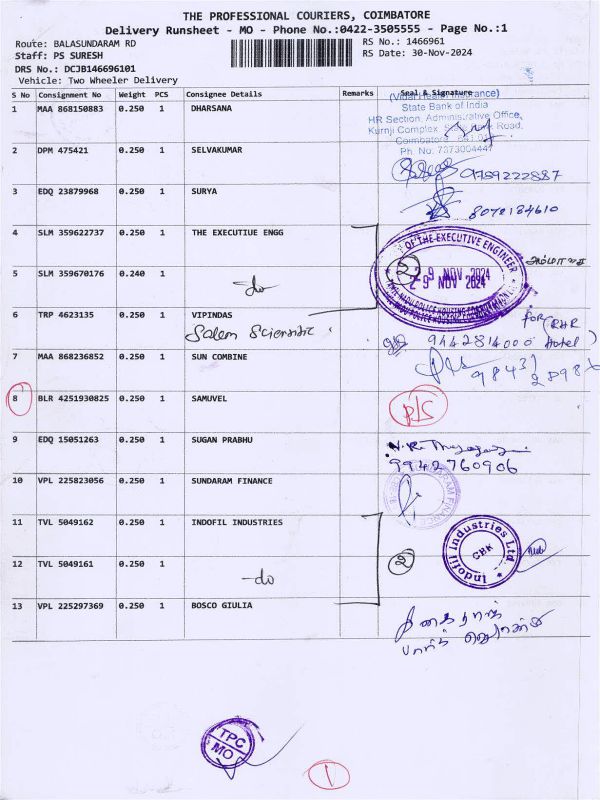 THE PROFESSIONAL COURIERS, COIMBATORE
Delivery Runsheet - MO - Phone No.:0422-3505555 - Page No.:1
Route: BALASUNDARAM RD RS No.: 1466961
Staff: PS SURESH RS Date: 30-Nov-2024
DRS No.: DCJB146696101
Vehicle: Two Wheeler Delivery
S No Consignment No Weight PCS Consignee Details Remarks Seal & Signature
(Vidal Health Insurance)
1 MAA 868150883 0.250 1 DHARSANA
State Bank of India
HR Section, Administrative Office,
Kurnji Complex, State Bank Road,
Coimbatore
Ph. No. 7373004447
2 DPM 475421 0.250 1 SELVAKUMAR
9789222887
3 EDQ 23879968 0.250 1 SURYA
8072184610
4 SLM 359622737 0.250 1 THE EXECUTIUE ENGG
OF THE EXECUTIVE ENGINEER
2
29 NOV 2024
5 SLM 359670176 0.240 1
-do-
6 TRP 4623135 0.250 1 VIPINDAS
Salem Scientific
FOR (RHR
9442814000 Hotel)
7 MAA 868236852 0.250 1 SUN COMBINE
98431 28986
8 BLR 4251930825 0.250 1 SAMUVEL
9 EDQ 15051263 0.250 1 SUGAN PRABHU
9942760906
10 VPL 225823056 0.250 1 SUNDARAM FINANCE
SUNDARAM FINANCE
11 TVL 5049162 0.250 1 INDOFIL INDUSTRIES
Indofil Industries Ltd.
CBK
2
12 TVL 5049161 0.250 1
-do
13 VPL 225297369 0.250 1 BOSCO GIULIA
TPC
MO
1